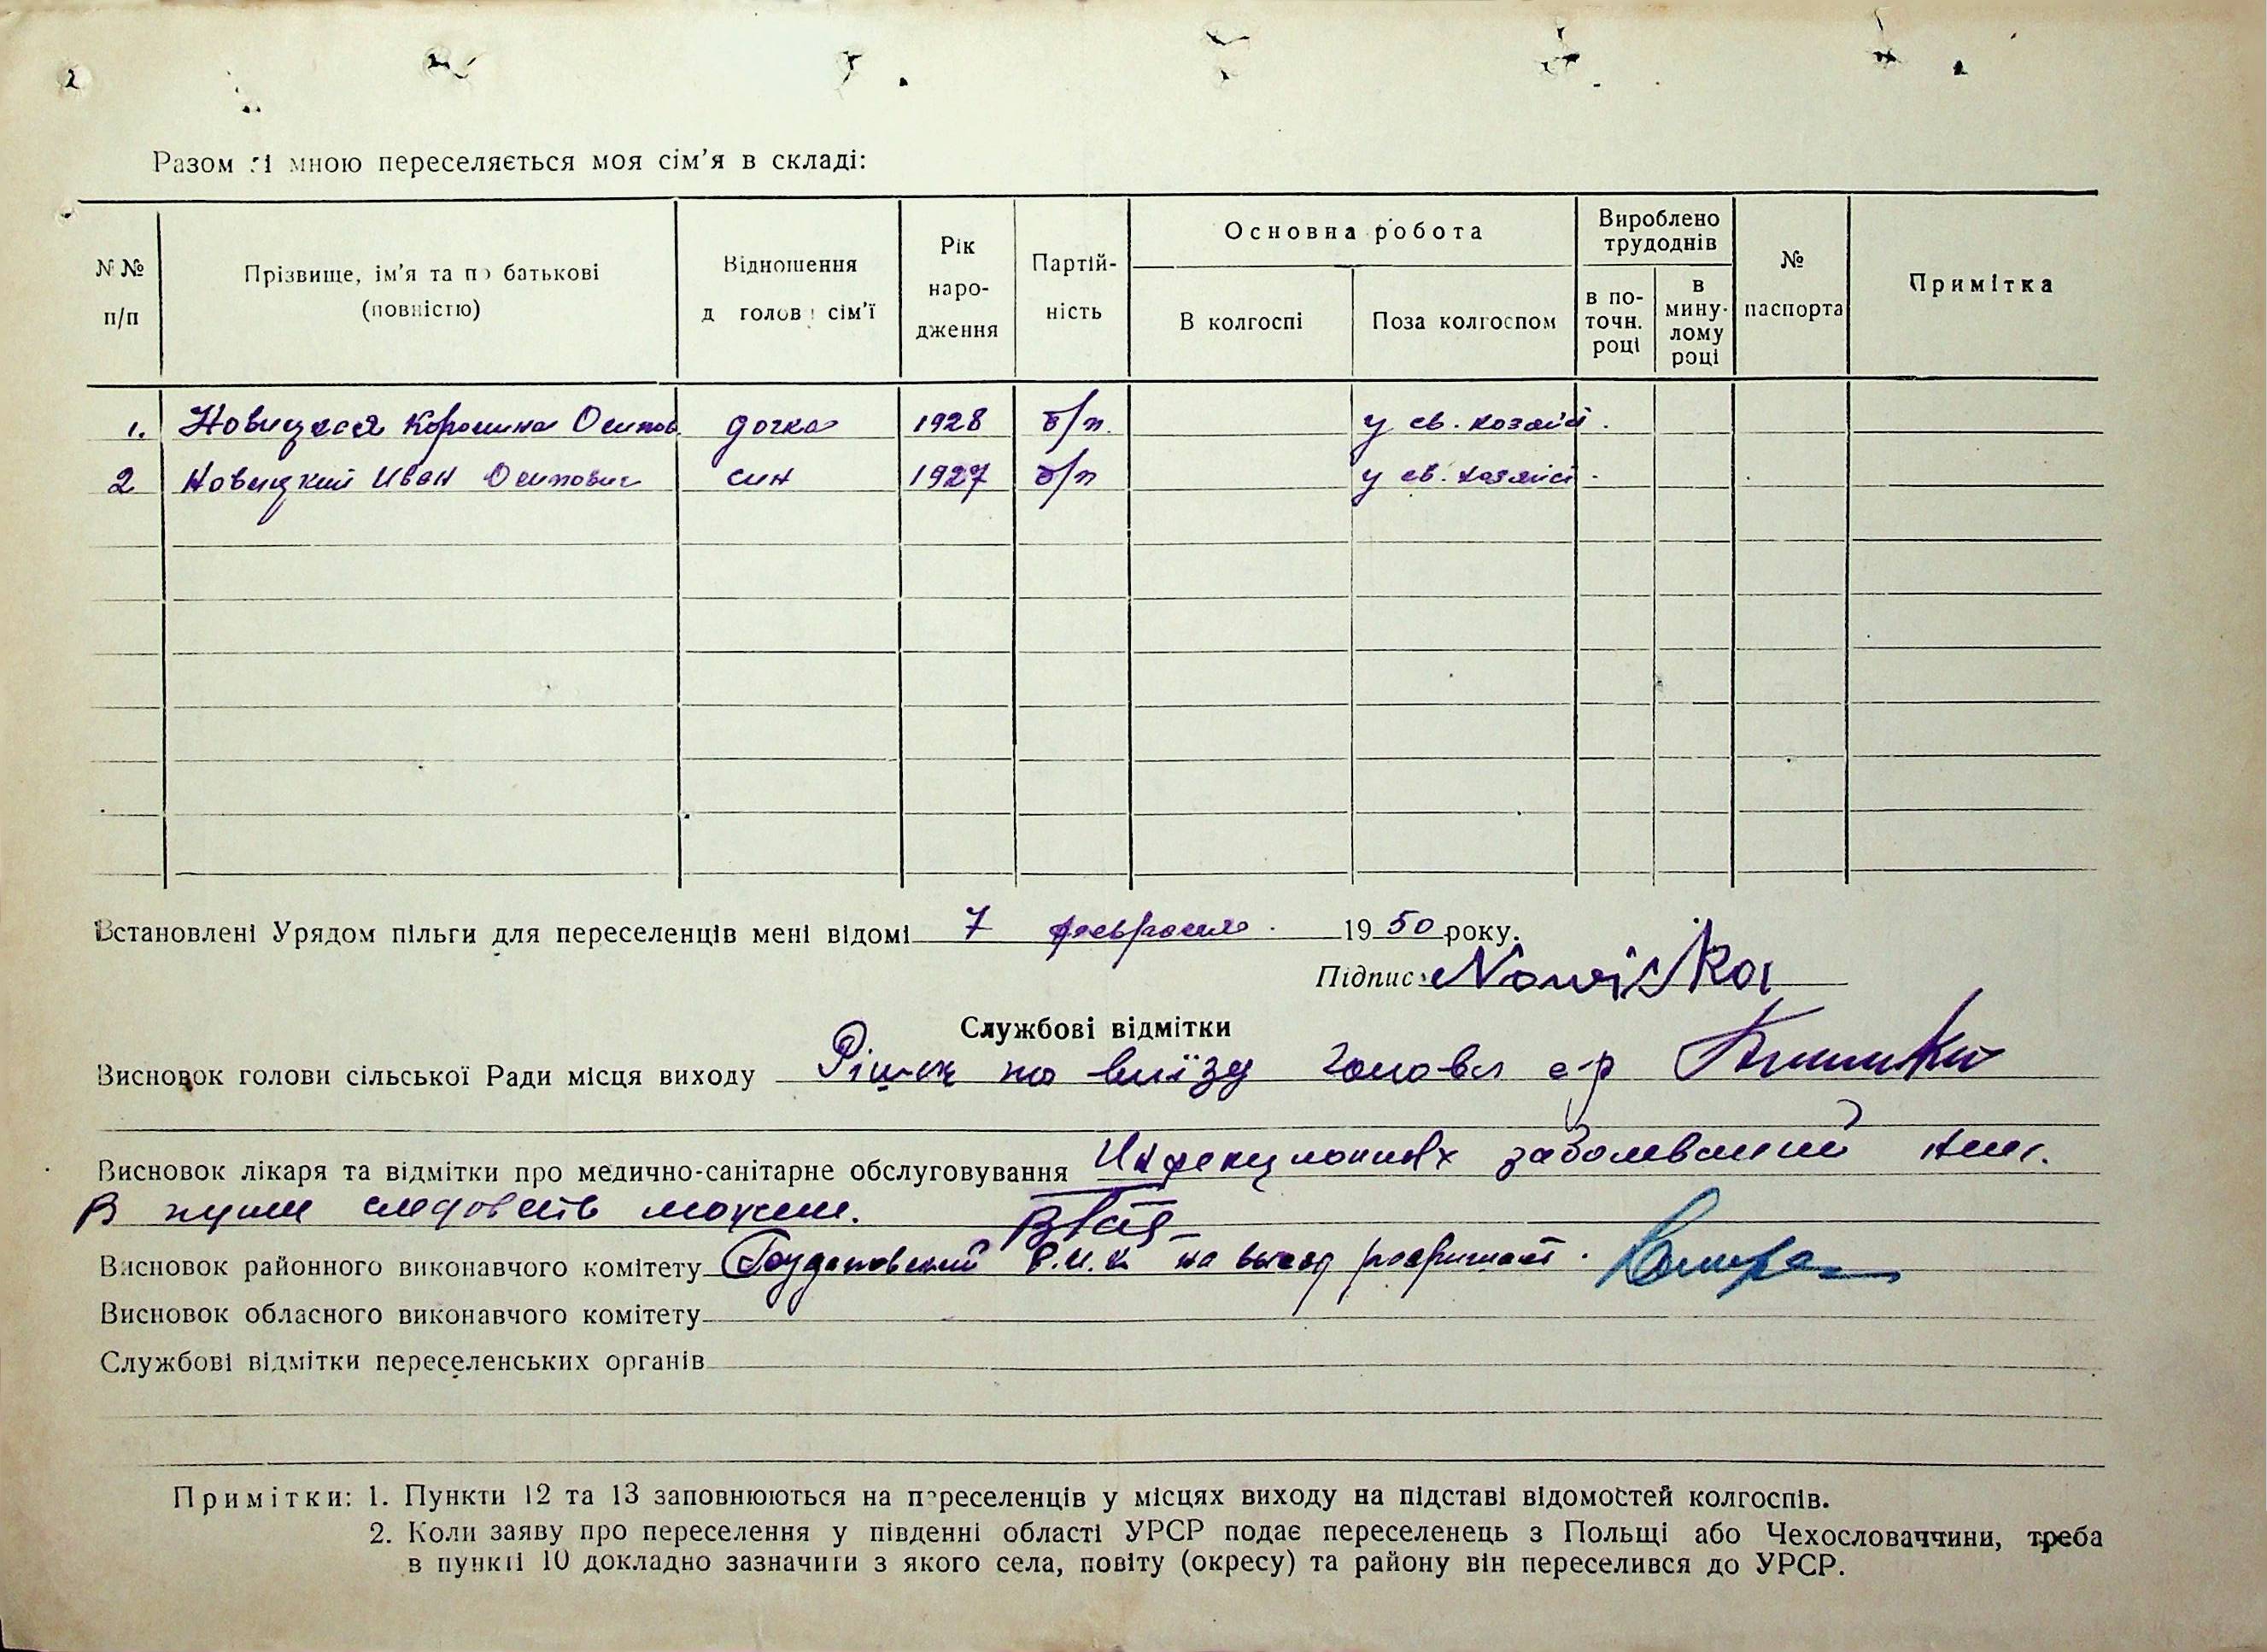 2
Разом зі мною переселяється моя сім'я в складі:
№№ п/п
Прізвище, ім'я та по батькові (повністю)
Відношення д голов сім'ї
Рік народження
Партійність
Основна робота
В колгоспі
Поза колгоспом
Вироблено трудоднів
в поточн. році
в минулому році
№ паспорта
Примітка
1. Новицкая Каролина Осипов. дочка 1928 б/п. у св. хозяйст.
2 Новицкий Иван Осипович син 1927 б/п у св. хозяйст.
Встановлені Урядом пільги для переселенців мені відомі 7 февраля. 1950 року.
Підпис: Nowicka
Службові відмітки
Висновок голови сільської Ради місця виходу по виїзду голова с-р
Висновок лікаря та відмітки про медично-санітарне обслуговування Инфекционных заболеваний нет.
В пути следовать может.
Висновок районного виконавчого комітету Р.И.К. на выезд
Висновок обласного виконавчого комітету
Службові відмітки переселенських органів
Примітки: 1. Пункти 12 та 13 заповнюються на переселенців у місцях виходу на підставі відомостей колгоспів.
2. Коли заяву про переселення у південні області УРСР подає переселенець з Польщі або Чехословаччини, треба
в пункті 10 докладно зазначити з якого села, повіту (окресу) та району він переселився до УРСР.